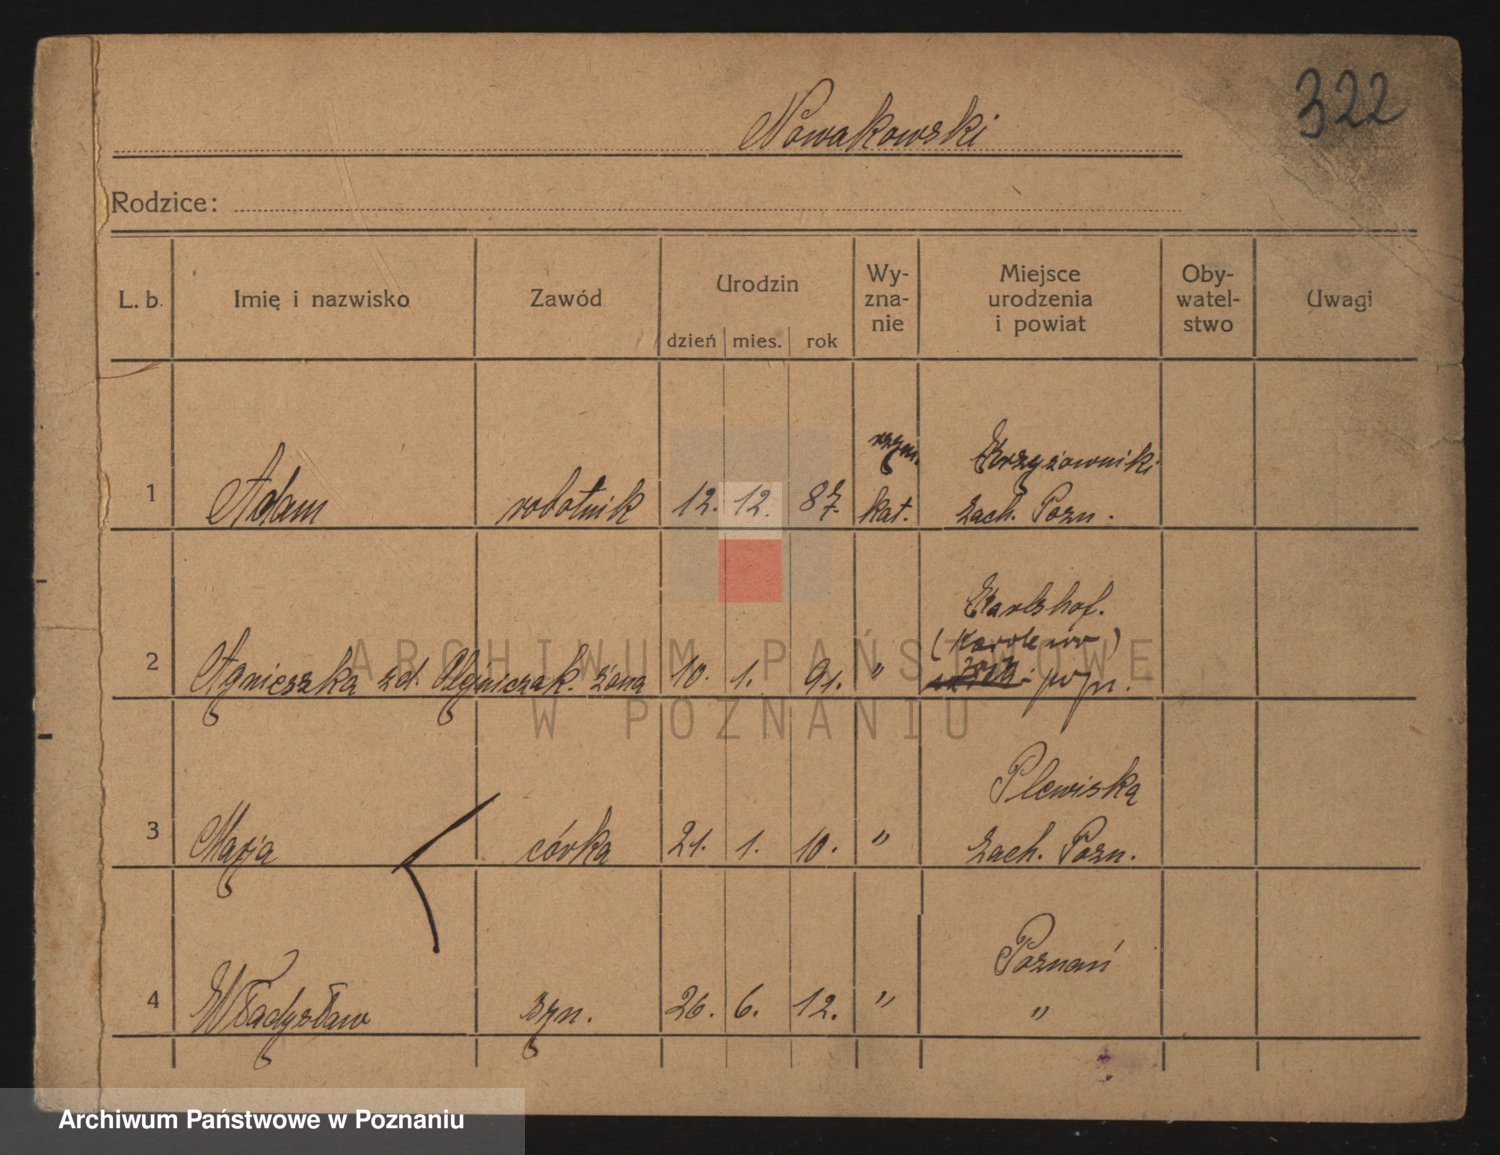 322
Nowakowski
Rodzice:
L. b. Imię i nazwisko Zawód Urodzin dzień mies. rok Wy-zna-nie Miejsce urodzenia i powiat Oby-watel-stwo Uwagi
rzym. Krzyżowniki
1 Adam robotnik 12. 12. 87. kat. zach. Pozn.
Karlshof.
(Karolewo)
2 Agnieszka zd. żona 10. 1. 91. "
Plewiska
3 Marja córka 21. 1. 10. " zach. Pozn.
Poznań
4 Władysław syn. 26. 6. 12. " "
ARCHIWUM PAŃSTWOWE
W POZNANIU
Archiwum Państwowe w Poznaniu